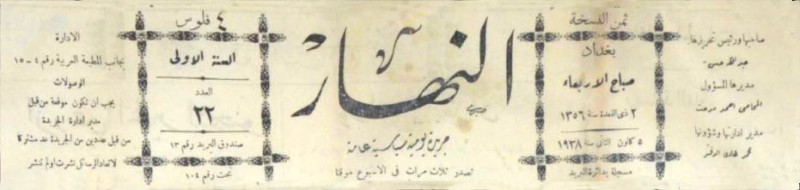 صاحبها ورئيس تحريرها
عبدالله حسن
مديرها المسؤول
المحامي احمد
مدير ادارتها وشؤونها
ثمن النسخة
بغداد
صباح الاربعاء
٢ ذي القعدة سنة ١٣٥٦
٥ كانون الثاني سنة ١٩٣٨
مسجلة بدائرة البريد
النهار
جريدة يومية سياسية عامة
تصدر ثلاث مرات في الاسبوع موقتا
٤ فلوس
السنة الاولى
العدد
٢٢
صندوق البريد رقم ١٣
تحت رقم ١٠٤
الادارة
بجانب المطبعة العربية رقم ٤ - ١٥
الوصولات
يجب ان تكون موقعة من قبل
مدير ادارة الجريدة
من قبل عددين من الجريدة عد مشتركا
لاتعاد الرسائل نشرت اولم تنشر